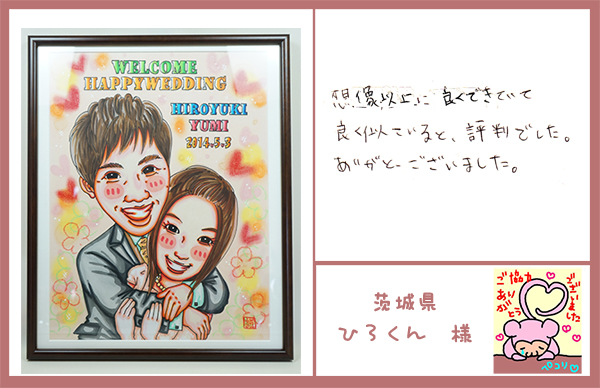 WELCOME
HAPPYWEDDING
HIROYUKI
YUMI
2014.5.3
想像以上に良くできていて
良く似ていると、評判でした。
ありがとーございました。
茨城県
ひろくん 様
ご協力
ありがとう
ございました
ペコリ